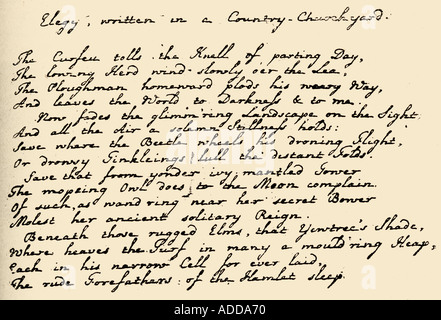 Elegy, written in a Country-Churchyard.
The Curfeu tolls the Knell of parting Day,
The lowing Herd wind slowly o'er the Lea,
The Ploughman homeward plods his weary Way,
And leaves the World to Darkness & to me.
Now fades the glimm'ring Landscape on the Sight,
And all the Air a solemn Stillness holds:
Save where the Beetle wheels his droning Flight,
Or drowsy Tinkleings lull the distant Folds.
Save that from yonder ivy-mantled Tower
The mopeing Owl does to the Moon complain
Of such, as wand'ring near her secret Bower
Molest her ancient solitary Reign.
Beneath those rugged Elms, that Yewtree's Shade,
Where heaves the Turf in many a mould'ring Heap,
Each in his narrow Cell for ever laid,
The rude Forefathers of the Hamlet sleep.
alamy
ADDA70
www.alamy.com